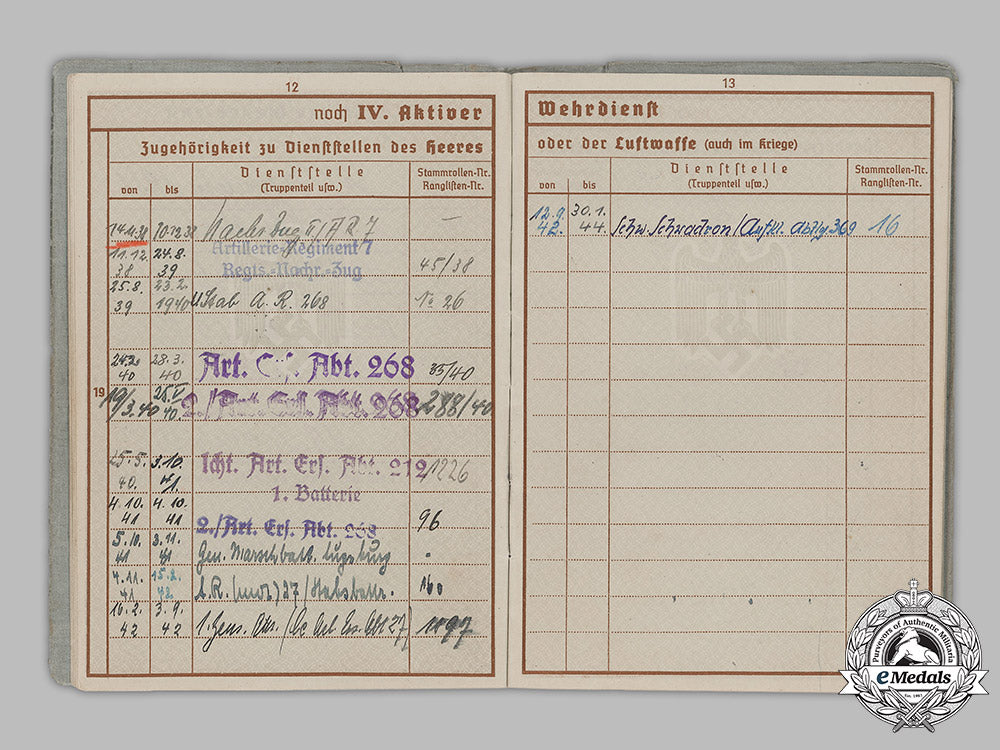 12
noch IV. Aktiver
Zugehörigkeit zu Dienststellen des Heeres
von
bis
Dienststelle
(Truppenteil usw.)
Stammrollen-Nr.
Ranglisten-Nr.
14.11.38 10.12.38 II/AR 7 —
Artillerie-Regiment 7
11.12. 24.8.
38 39 Regts.-Nachr.-Zug 45/38
25.8. 23.2.
39 1940 Stab A. R. 268 No 26
24.2. 28.3.
40 40 Art. Abt. 268 35/40
19
19/3.40 25.V. 40 2./Art. Ers. Abt. 268 288/40
25.5. 3.10. lcht. Art. Ers. Abt. 212 1226
40. 41. 1. Batterie
4.10. 4.10.
41 41 2./Art. Ers. Abt. 268 96
5.10. 3.11.
41 41 Gen. Marschbatt. Augsburg
4.11. 15.2.
41 42 A.R. (mot) 27 /Stabsbattr. 160
16.2. 3.9.
42 42 1. Gens. 27) 1197
13
Wehrdienst
oder der Luftwaffe (auch im Kriege)
von
bis
Dienststelle
(Truppenteil usw.)
Stammrollen-Nr.
Ranglisten-Nr.
12.9. 30.1.
42. 44. Schw. Schwadron/Aufkl. Abtlg 369 16
Purveyors of Authentic Militaria
eMedals